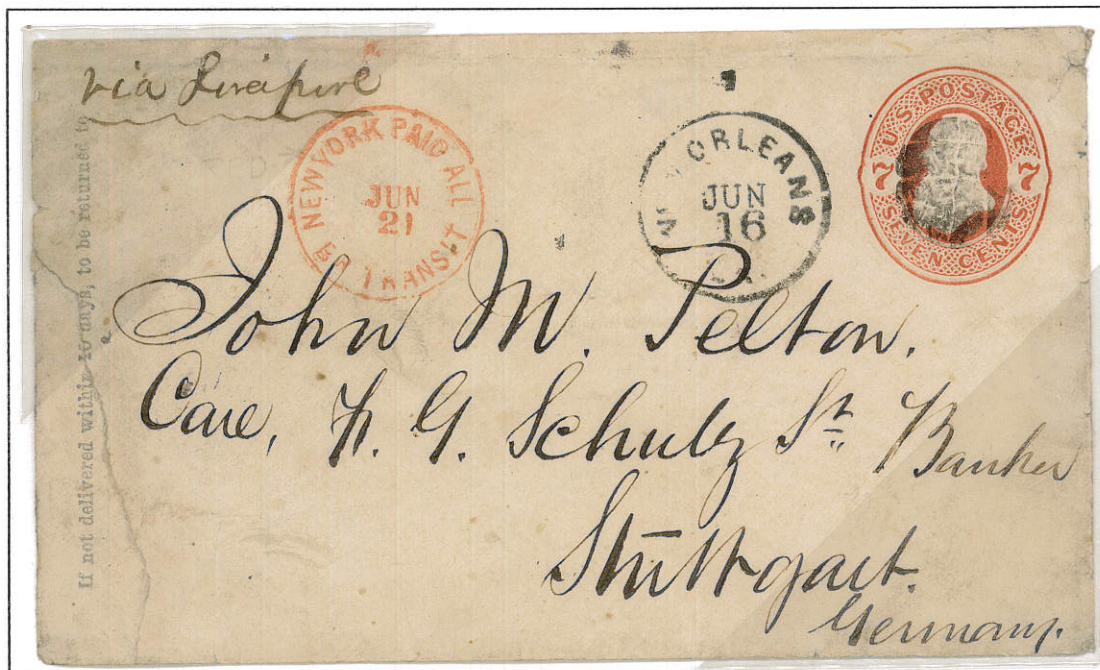 via Liverpool
If not delivered within 10 days, to be returned to
NEW YORK PAID ALL
JUN
21
BR TRANSIT
NEW ORLEANS
JUN
16
LA.
U.S. POSTAGE
7 7
SEVEN CENTS
John M. Pelton.
Care, F. G. Schulz Sr. Banker
Stuttgart.
Germany.